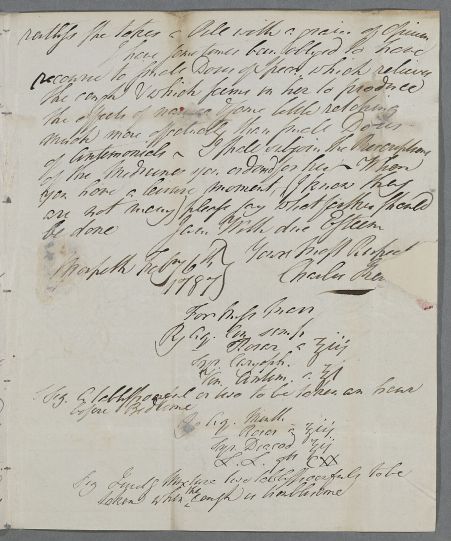 restless She takes a Pill with a grain of Opium
I have sometimes been obliged to have
recourse to small Doses of Ipecac which relieves
the cough & which seems in her to produce
the effects of nausea & some little retching
much more effectually than small Doses
of Antimonials - I shall subjoin the Prescriptions
of the Medicines you ordered for her - When
you have a leisure moment, (I know they
are not many) please say what further should
be done I am With due Esteem
Yours most Respect
Morpeth Feby 6th
1787
Charles
For Miss
Rx Aq. Cin. simp.
Rosar. a ʒiij
Syr. Caryoph. ʒi
Vin. Antim. a ʒi
Sig. A tablespoonful or two to be taken an hour
before Bedtime
Rx Aq. Menth.
Rosar. a ʒiij
Syr. Diacod. ʒij
L. L. gtt CXX
Sig Mixture two tablespoonfuls to be
taken when the cough is troublesome